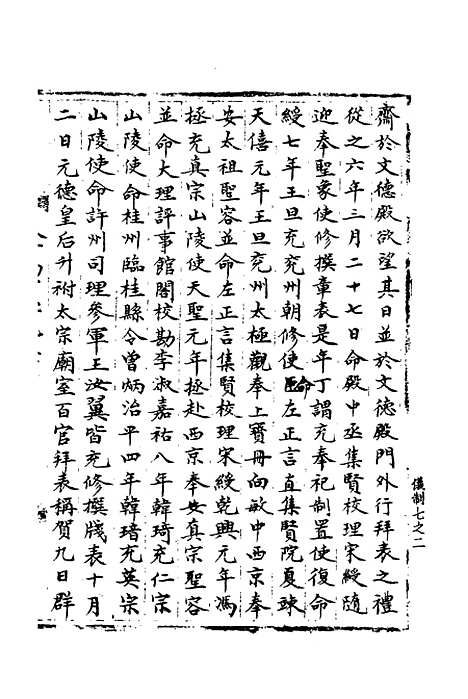 齋於文德殿欲望其日並於文德殿門外行拜表之禮
從之六年三月二十七日命殿中丞集賢校理宋綬隨
迎奉聖象使修撰章表是年丁謂充奉祀制置使復命
綬七年王旦充兖州朝修使命左正言直集賢院夏竦
天僖元年王旦兖州太極觀奉上寶冊向敏中西京奉
安太祖聖容並命左正言集賢校理宋綬乾興元年馮
拯充真宗山陵使天聖元年拯赴西京奉安真宗聖容
並命大理評事館閣校勘李淑嘉祐八年韓琦充仁宗
山陵使命桂州臨桂縣令曾炳治平四年韓琦充英宗
山陵使命許州司理參軍王汝翼皆充修撰牋表十月
二日元德皇后升祔太宗廟室百官拜表稱賀九日群
儀制七之二